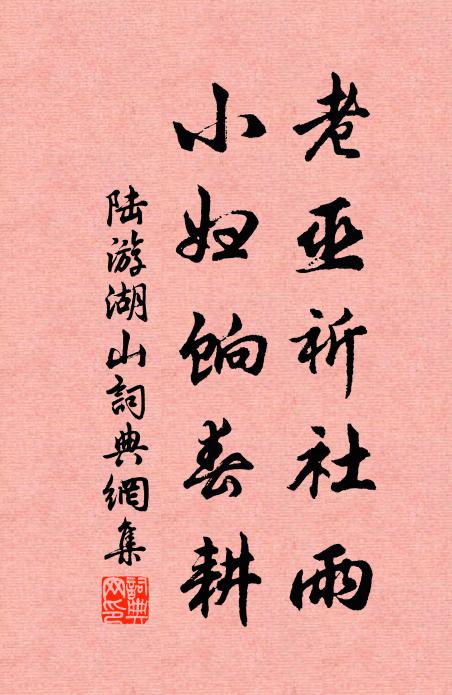 老巫祈社雨
小妇饷春耕
陆游湖山詞典網集
詞典
网印